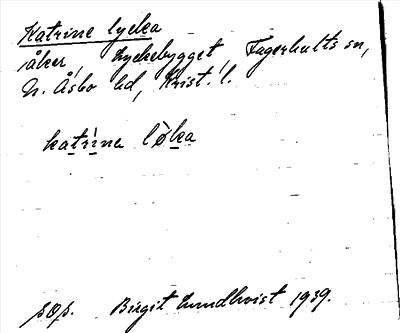 Katrine lycka
åker, Lyckebygget Fagerhults sn,
N. Åsbo hd, Krist. l.
katrina løka
sOp. Birgit Lundkvist 1939.